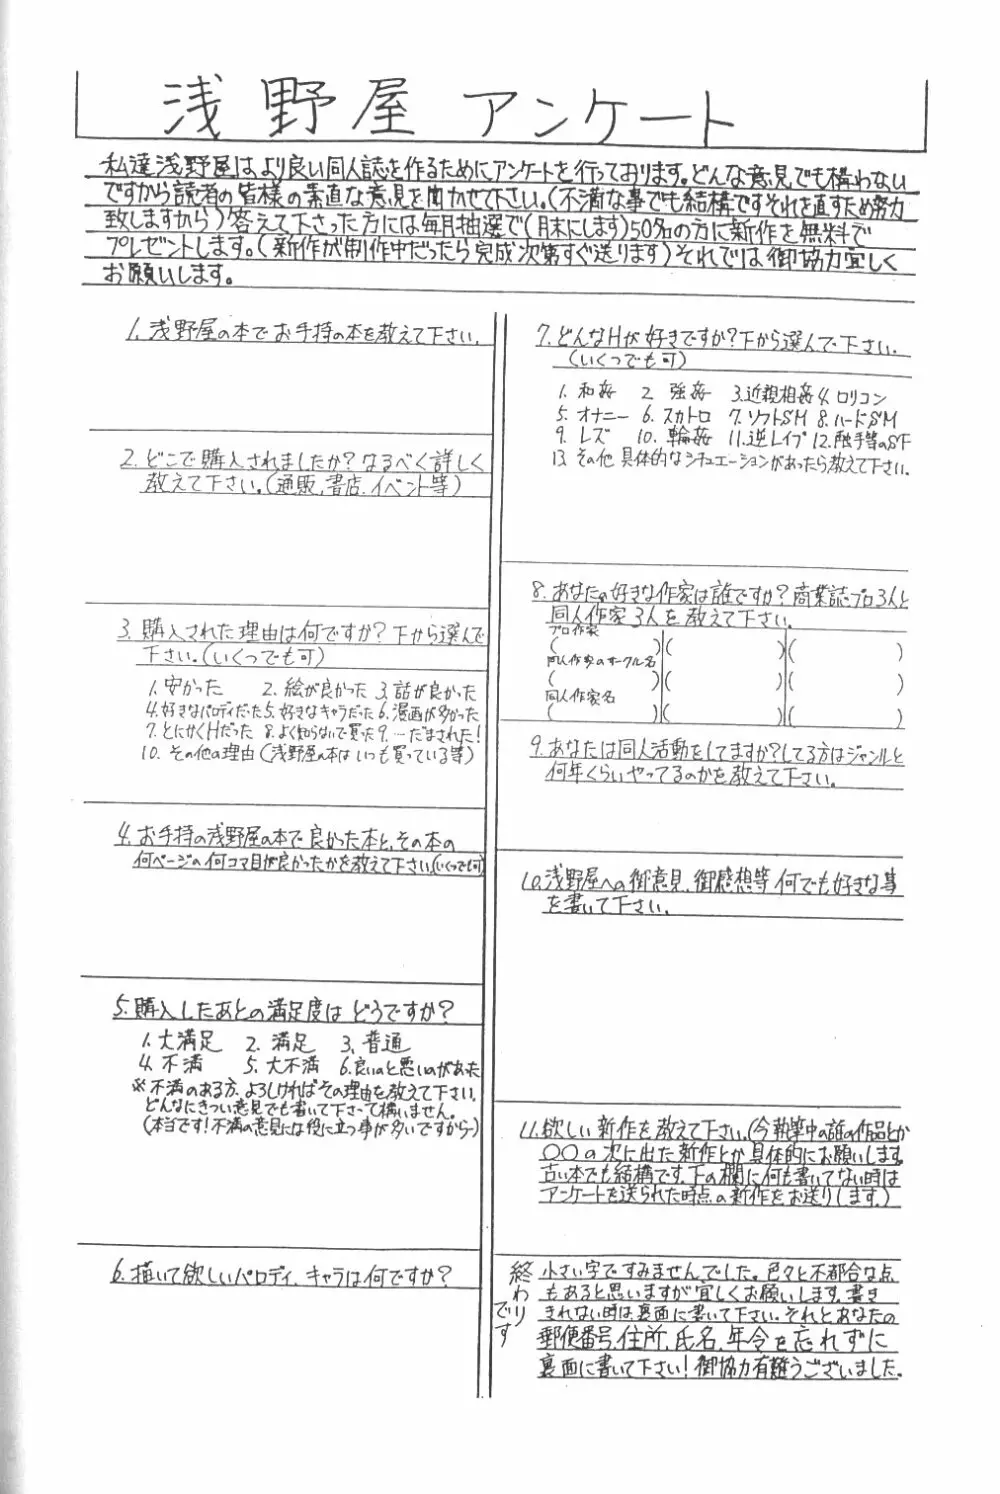 浅野屋 アンケート
私達浅野屋はより良い同人誌を作るためにアンケートを行っております。どんな意見でも構わない
ですから読者の皆様の素直な意見を聞かせて下さい。(不満な事でも結構ですそれを直すため努力
致しますから)答えて下さった方には毎月抽選で(月末にします)50名の方に新作を無料で
プレゼントします。(新作が制作中だったら完成次第すぐ送ります)それでは御協力宜しく
お願いします。
1.浅野屋の本でお手持の本を教えて下さい。
2.どこで購入されましたか?なるべく詳しく
教えて下さい。(通販,書店,イベント等)
3.購入された理由は何ですか?下から選んで
下さい。(いくつでも可)
1.安かった 2.絵が良かった 3.話が良かった
4.好きなパロディだった 5.好きなキャラだった 6.漫画が多かった
7.とにかくHだった 8.よく知らないで買った 9.…だまされた!
10.その他の理由(浅野屋の本はいつも買っている等)
4.お手持の浅野屋の本で良かった本と、その本の
何ページの何コマ目が良かったかを教えて下さい。(いくつでも可)
5.購入したあとの満足度はどうですか?
1.大満足 2.満足 3.普通
4.不満 5.大不満 6.良いのと悪いのがあった
※不満のある方、よろしければその理由を教えて下さい。
どんなにきつい意見でも書いて下さって構いません。
(本当です!不満の意見には役に立つ事が多いですから)
6.描いて欲しいパロディ、キャラは何ですか?
7.どんなHが好きですか?下から選んで下さい。
(いくつでも可)
1.和姦 2.強姦 3.近親相姦 4.ロリコン
5.オナニー 6.スカトロ 7.ソフトSM 8.ハードSM
9.レズ 10.輪姦 11.逆レイプ 12.触手等のSF
13.その他 具体的なシチュエーションがあったら教えて下さい。
8.あなたの好きな作家は誰ですか?商業誌プロ3人と
同人作家3人を教えて下さい。
プロ作家
( )( )( )
同人作家のサークル名
( )( )( )
同人作家名
( )( )( )
9.あなたは同人活動をしてますか?してる方はジャンルと
何年くらいやってるのかを教えて下さい。
10.浅野屋への御意見、御感想等何でも好きな事
を書いて下さい。
11.欲しい新作を教えて下さい。(今執筆中の誰の作品とか
〇〇の次に出た新作とか具体的にお願いします。
古い本でも結構です。下の欄に何も書いてない時は
アンケートを送られた時点の新作をお送りします。)
終わりです
小さい字ですみませんでした。色々と不都合な点
もあると思いますが宜しくお願いします。書き
きれない時は裏面に書いて下さい。それとあなたの
郵便番号、住所、氏名、年令を忘れずに
裏面に書いて下さい!御協力有難うございました。